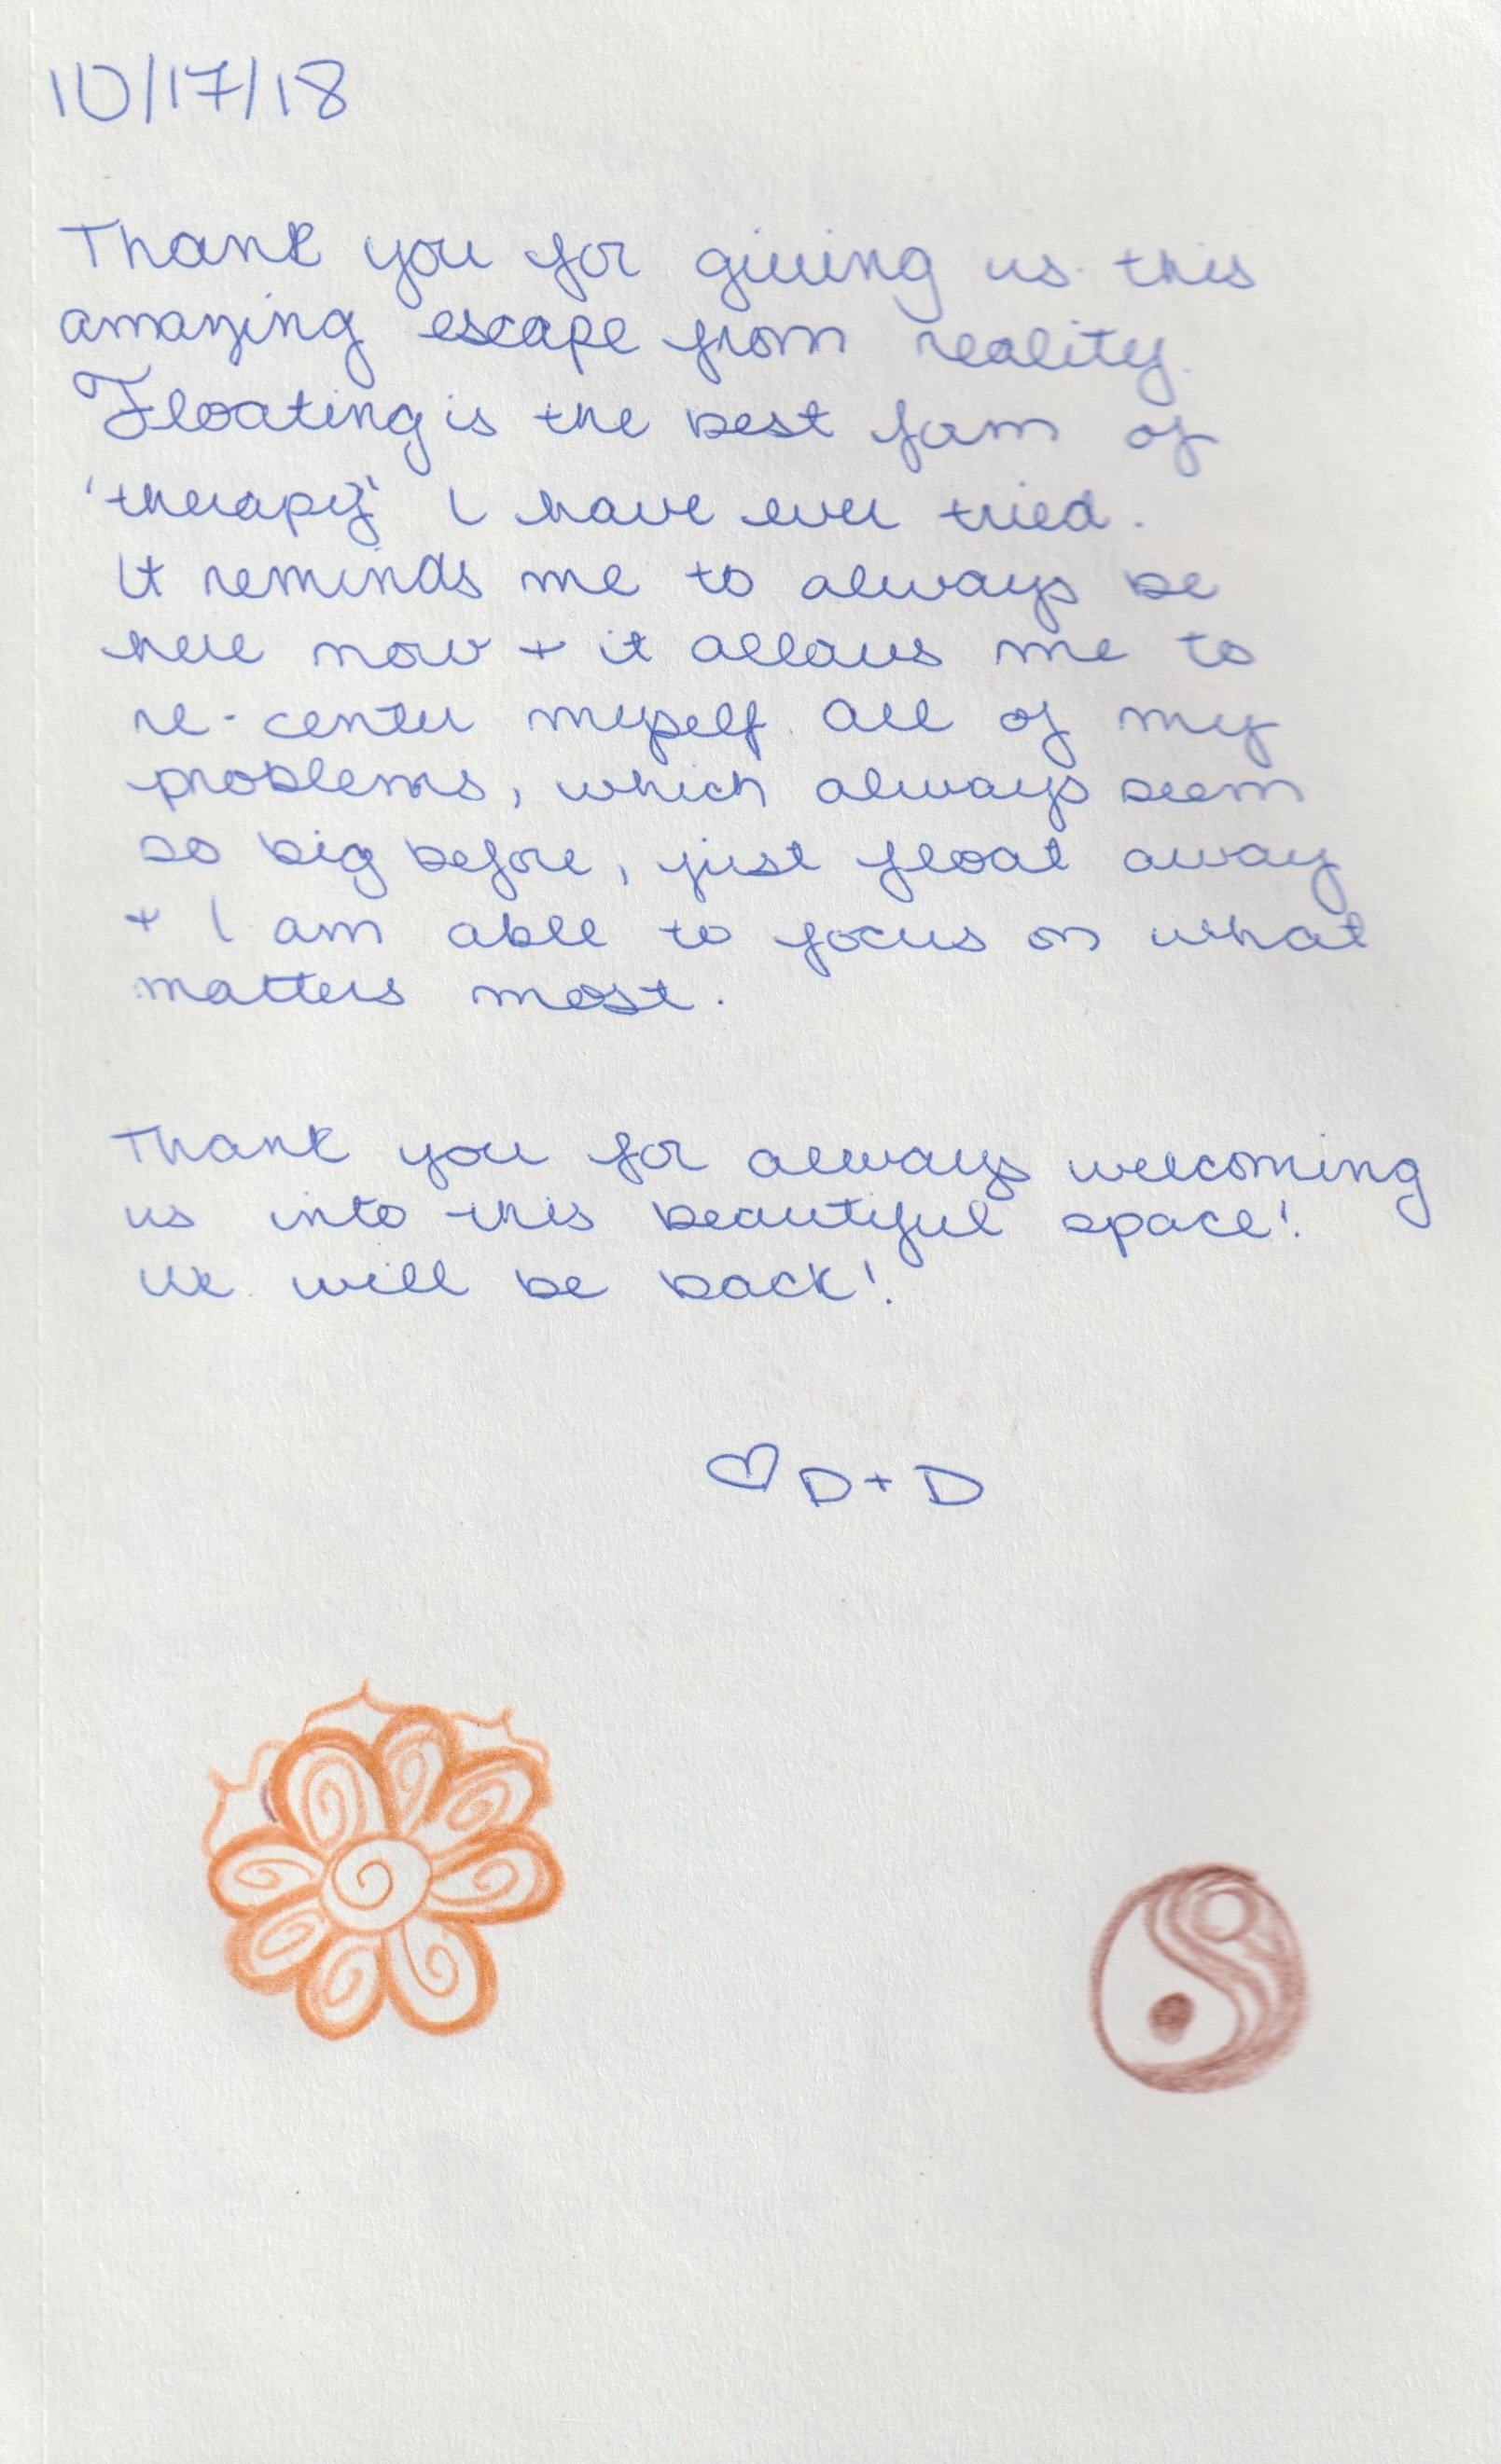 10/17/18
Thank you for giving us this
amazing escape from reality.
Floating is the best form of
'therapy' I have ever tried.
It reminds me to always be
here now + it allows me to
re-center myself. All of my
problems, which always seem
so big before, just float away
+ I am able to focus on what
matters most.
Thank you for always welcoming
us into this beautiful space!
We will be back!
♡ D + D